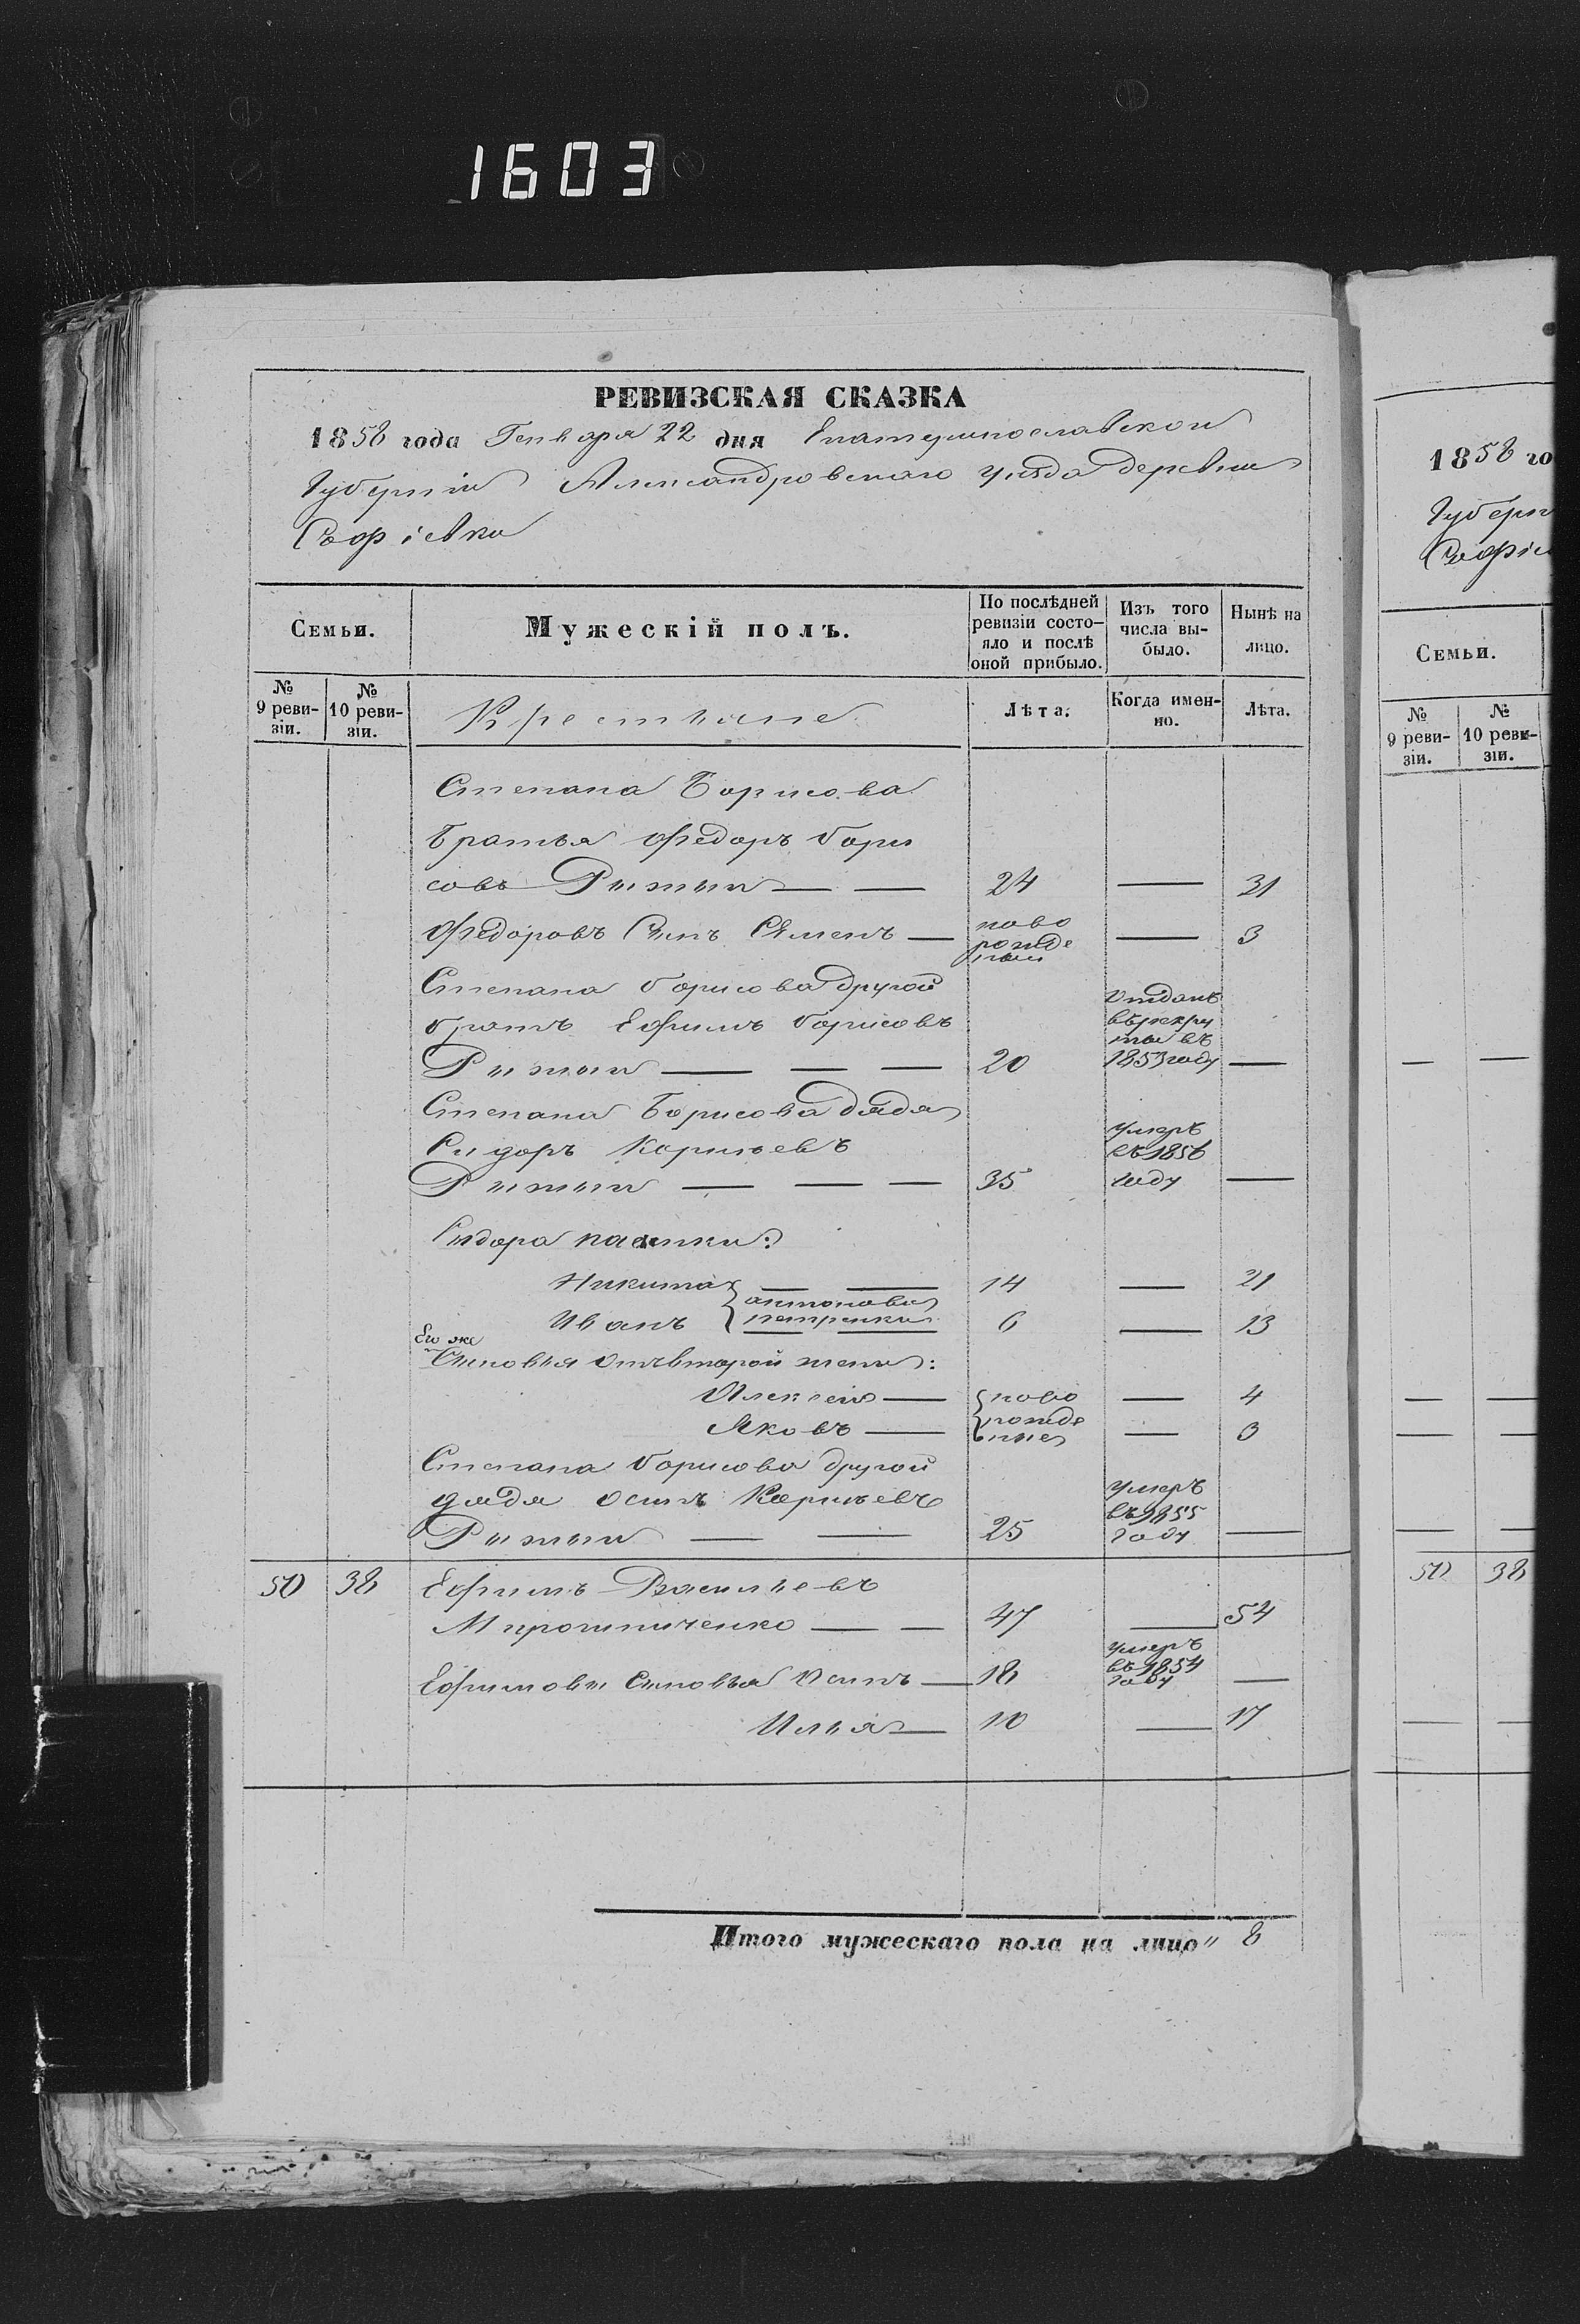 1603
РЕВИЗСКАЯ СКАЗКА
1858 года Генваря 22 дня Екатеринославской
Губернiи Александровскаго уѣзда деревни
Софiевки
Семьи.
Мужескiй полъ.
По послѣдней ревизiи состо-
яло и послѣ
оной прибыло.
Изъ того
числа вы-
было.
Нынѣ на
лицо.
№
9 реви-
зiи.
№
10 реви-
зiи.
Крестьяне
Лѣта.
Когда имен-
но.
Лѣта.
Степана Борисова
братья Федоръ Бори
совъ Рижый — — 24 — 31
Федоровъ Сынъ Семенъ — ново рожде ный — 3
Степана Борисова другой
братъ Ефимъ Борисовъ
Рижый — — — 20 Отданъ въ рекру ты въ 1853 году —
Степана Борисова дядя
Сидоръ Корнѣевъ
Рижый — — — 35 умеръ въ 1856 году —
Сидора пасынки:
Никита — — 14 — 21
Иванъ — — 6 — 13
антоновы
петренки
Его же
Сыновья отъ второй жены:
Алексей — ново — 4
Яковъ — рожде ные — 3
Степана Борисова другой
дядя Осипъ Корнѣевъ
Рижый — — 25 умеръ въ 1855 году —
50 38 Ефимъ Васильевъ
Мирошниченко — — 47 — 54
Ефимовы Сыновья Осипъ — 18 умеръ въ 1854 году —
Илья — 10 — 17
Итого мужескаго пола на лицо „ 8
1858 го
Губерн
Софiе
Семьи.
№
9 реви-
зiи.
№
10 реви-
зiи.
50 38